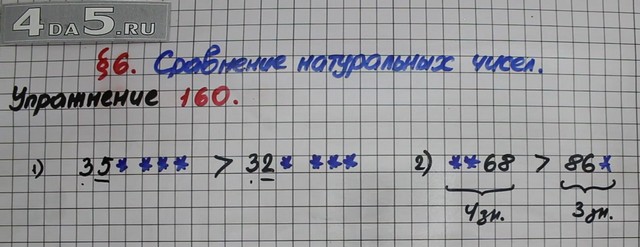 4DA5.RU
§6. Сравнение натуральных чисел.
Упражнение 160.
1) 35* *** > 32* *** 2) **68 > 86*
4 зн. 3 зн.